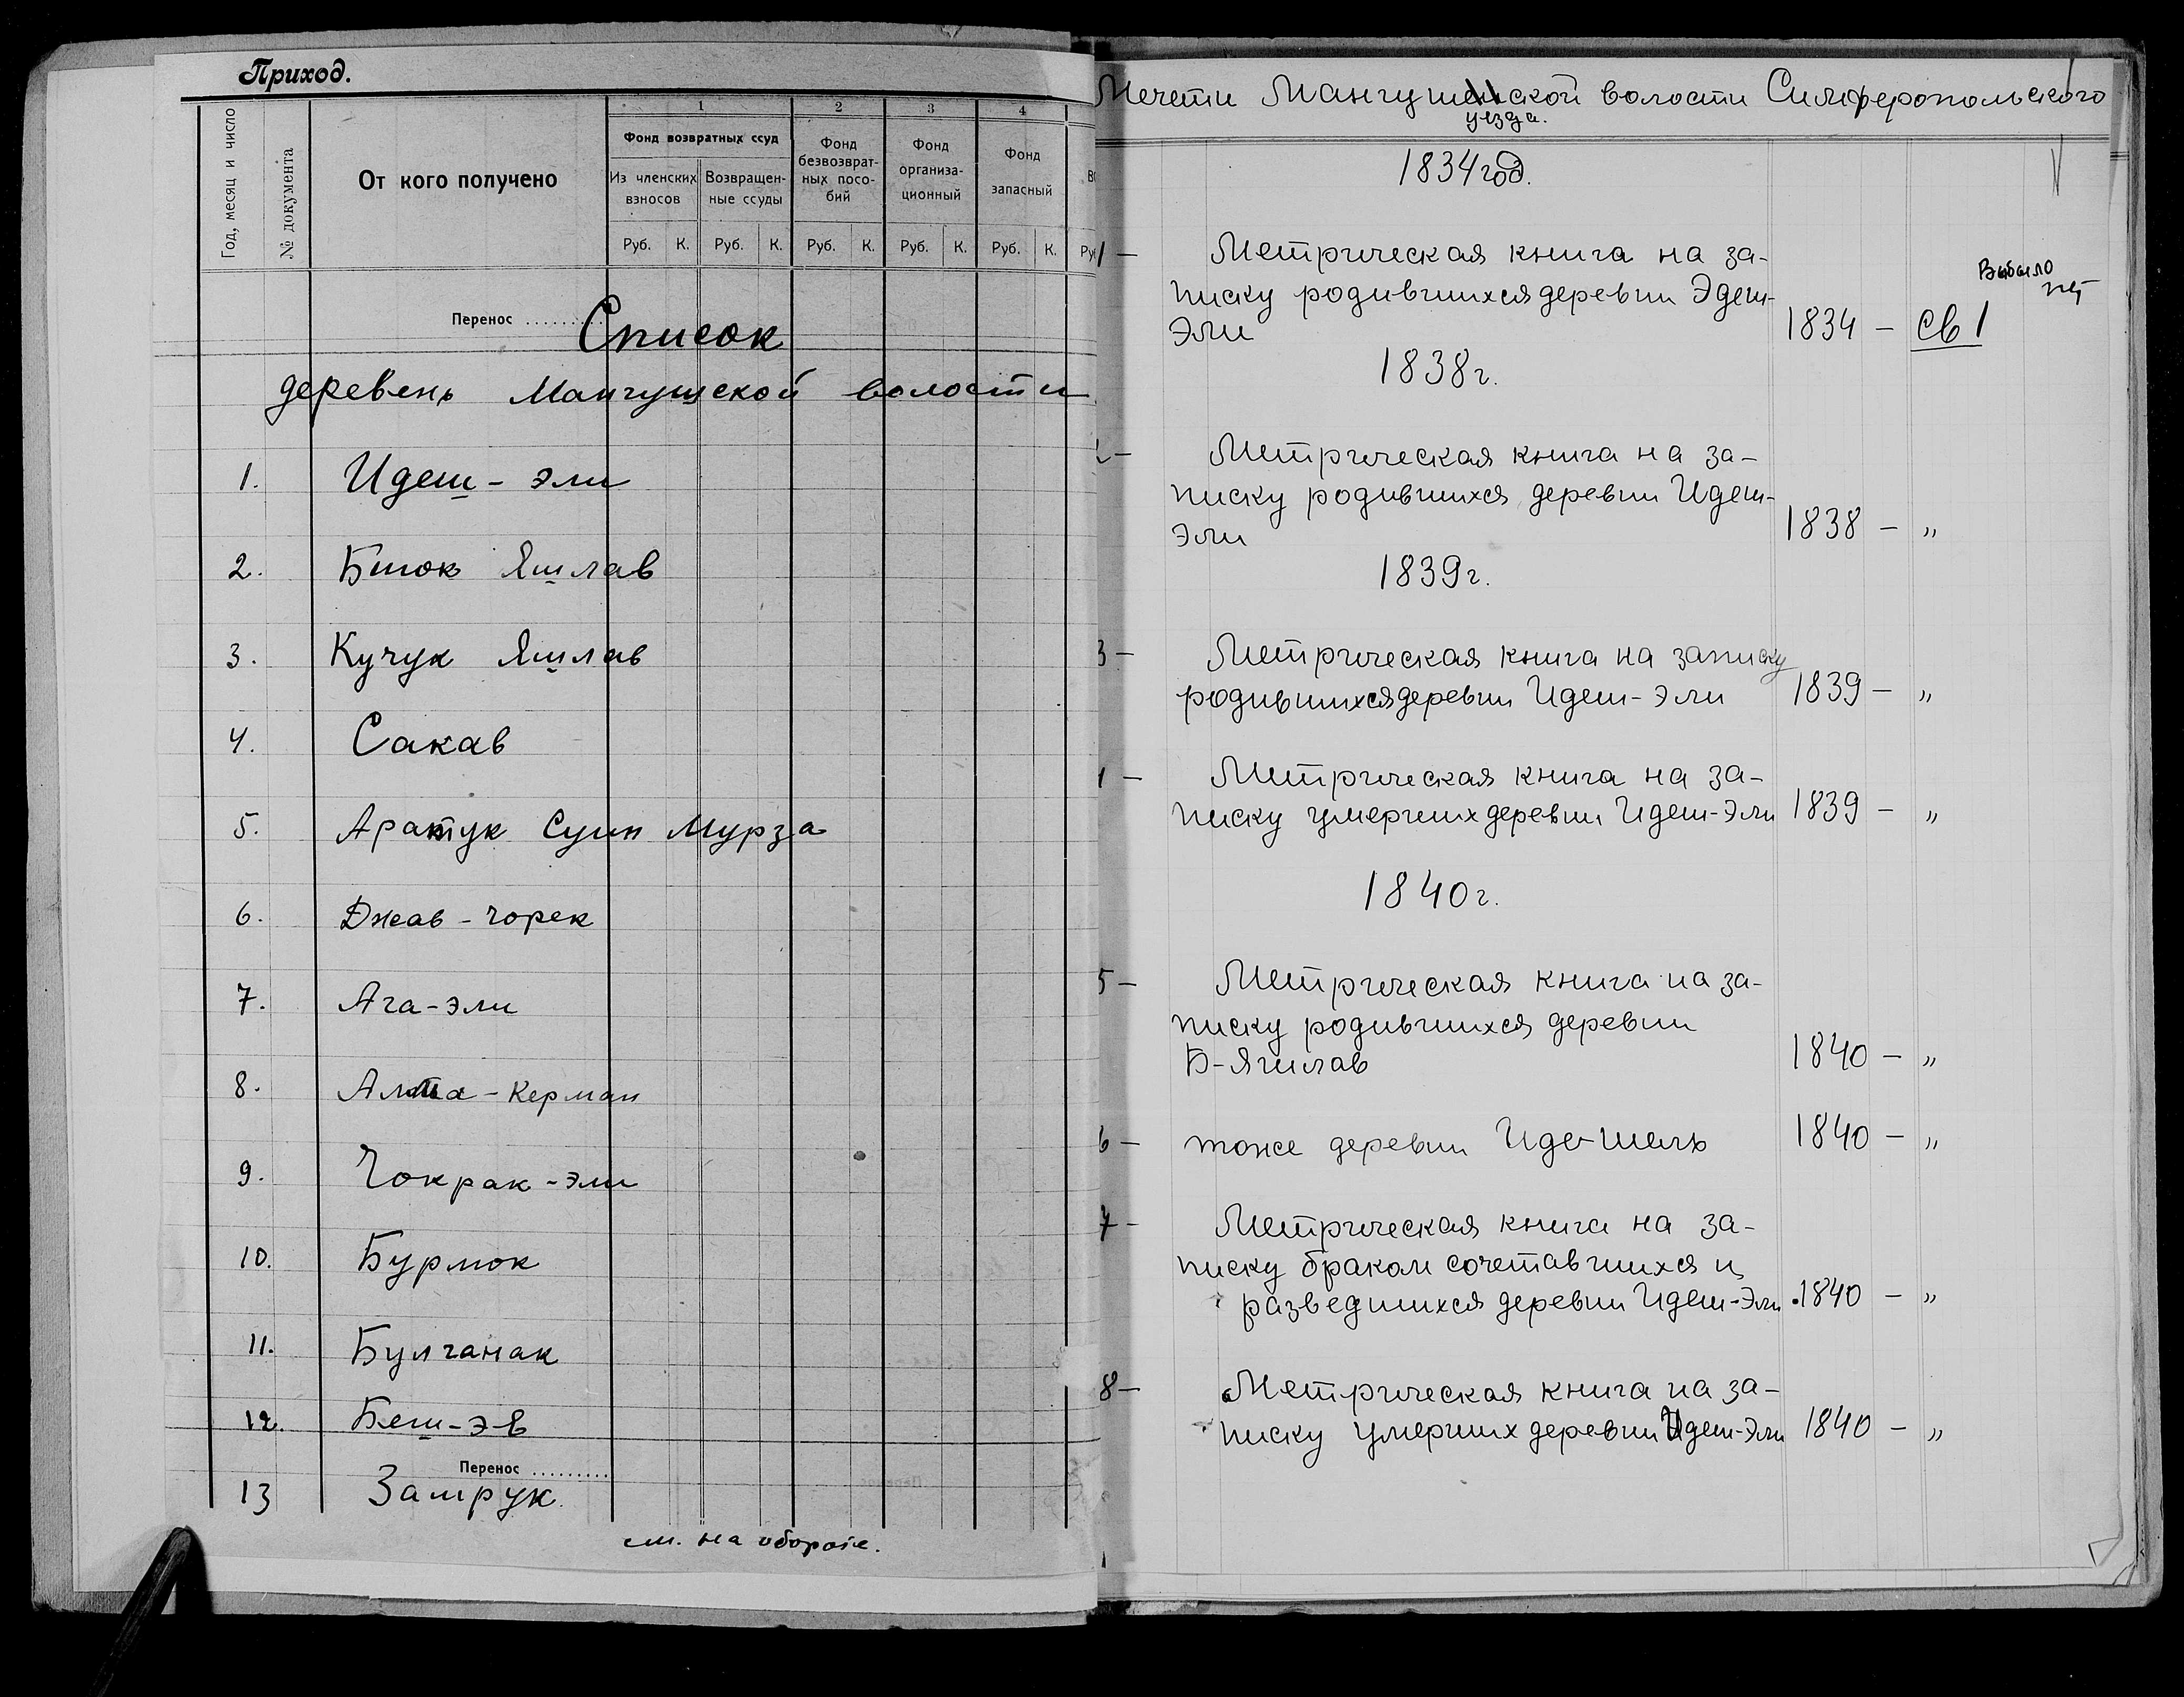 Приход.
Год, месяц и число
№ документа
От кого получено
1
2
3
4
Фонд возвратных ссуд
Из членских взносов
Возвращен-
ные ссуды
Фонд
безвозврат-
ных посо-
бий
Фонд
организа-
ционный
Фонд
запасный
Руб. К. Руб. К. Руб. К. Руб. К. Руб. К.
Перенос
Список
деревень Мангушской волости
1. Идеш - эли
2. Биюк Яшлав
3. Кучук Яшлав
4. Сакав
5. Аратук Суин Мурза
6. Джав - чорек
7. Ага-эли
8. Алма - Керман
9. Чокрак - эли
10. Бурлюк
11. Булганак
12. Беш-э-в
Перенос
13 Замрук
см. на обороте.
Мечети Мангушской волости Симферопольского
уезда.
1834 год.
1 - Метрическая книга на за-
писку родившихся деревни Эдеш-
Эли 1834 - св 1
Выбыло
нет
1838 г.
2 - Метрическая книга на за-
писку родившихся деревни Идеш-
Эли 1838 - "
1839 г.
3 - Метрическая книга на записку
родившихся деревни Идеш-Эли 1839 - "
Метрическая книга на за-
писку умерших деревни Идеш-Эли 1839 - "
1840 г.
5 - Метрическая книга на за-
писку родившихся деревни
Б-Яшлав 1840 - "
6 - тоже деревни Иде-шель 1840 - "
7 - Метрическая книга на за-
писку браком сочетавшихся и
разведшихся деревни Идеш-Эли 1840 - "
8 - Метрическая книга на за-
писку умерших деревни Идеш-Эли 1840 - "